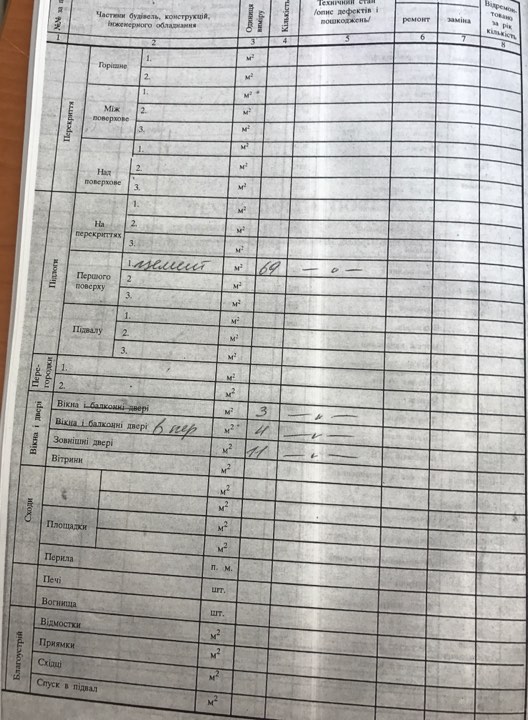 №№ за п
Частини будівель, конструкцій, інженерного обладнання
Одиниця виміру
Кількість
Технічний стан /опис дефектів і пошкоджень/
ремонт
заміна
Відремонтовано за рік кількість
1 2 3 4 5 6 7 8
Перекриття
Горішнє 1. м²
2. м²
Між поверхове 1. м²
2. м²
3. м²
Над поверхове 1. м²
2. м²
3. м²
Підлоги
На перекриттях 1. м²
2. м²
3. м²
Першого поверху 1. цемент м² 69 — „ —
2 м²
3. м²
Підвалу 1. м²
2. м²
3. м²
Перегородки
1. м²
2. м²
Вікна і двері
Вікна і балконні двері м² 3 — „ —
Вікна і балконні двері в пер м² 4 — „ —
Зовнішні двері м² 11 — „ —
Вітрини м²
Сходи
м²
м²
Площадки м²
м²
Перила п. м.
Печі шт.
Вогнища шт.
Благоустрій
Відмостки м²
Приямки м²
Східці м²
Спуск в підвал м²